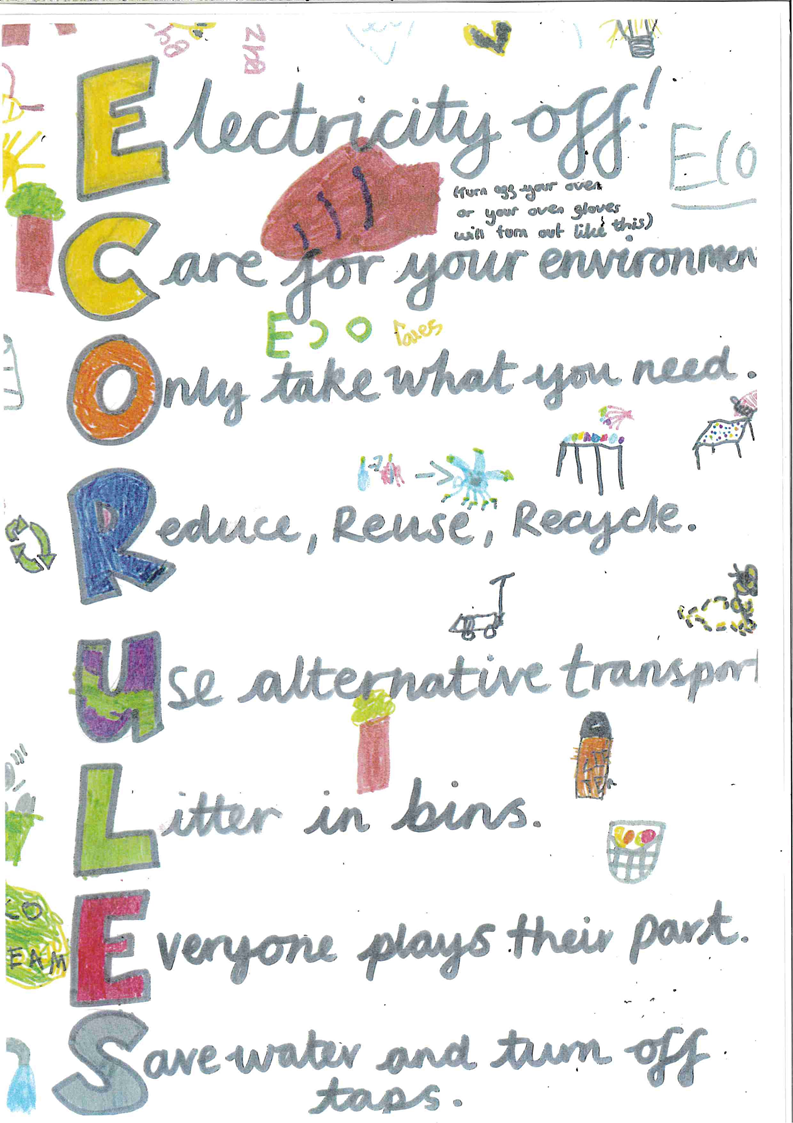 Electricity off!
ECO
(turn off your oven
or your oven gloves
will turn out like this)
Care for your environmen
ECO
Only take what you need.
Reduce, Reuse, Recycle.
Use alternative transport
Litter in bins.
CO
EAM
Everyone plays their part.
Save water and turn off
taps.